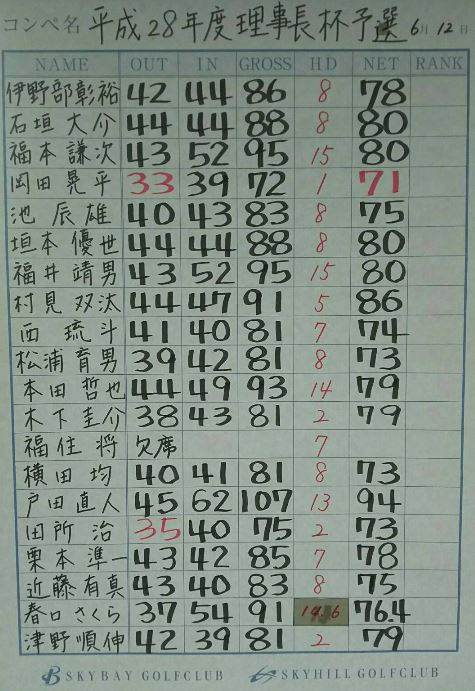 コンペ名 平成28年度理事長杯予選 6月12日
NAME OUT IN GROSS HD NET RANK
伊野部彰裕 42 44 86 8 78
石垣大介 44 44 88 8 80
福本謙次 43 52 95 15 80
岡田晃平 33 39 72 1 71
池辰雄 40 43 83 8 75
垣本優世 44 44 88 8 80
福井靖男 43 52 95 15 80
村見双汰 44 47 91 5 86
西琉斗 41 40 81 7 74
松浦育男 39 42 81 8 73
本田哲也 44 49 93 14 79
木下圭介 38 43 81 2 79
福住将 欠席 7
横田均 40 41 81 8 73
戸田直人 45 62 107 13 94
田所治 35 40 75 2 73
栗本準一 43 42 85 7 78
近藤有真 43 40 83 8 75
春口さくら 37 54 91 14.6 76.4
津野順伸 42 39 81 2 79
SKYBAY GOLFCLUB SKYHILL GOLFCLUB